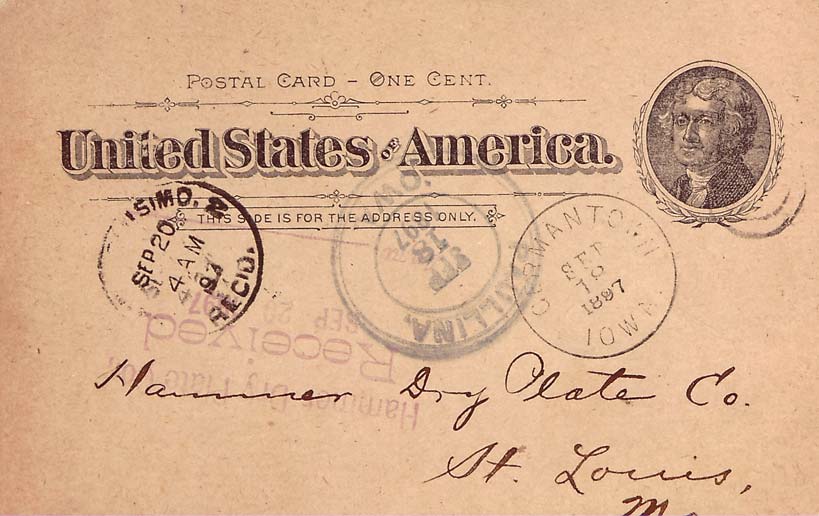 POSTAL CARD - ONE CENT.
United States of America.
THIS SIDE IS FOR THE ADDRESS ONLY.
SEP 20
4 AM
97
RECD.
SEP
18
97
GERMANTOWN
SET
18
1897
IOWA.
Hammer Dry Plate Co.
Received
SEP 20
Hammer Dry Plate Co.
St. Louis,